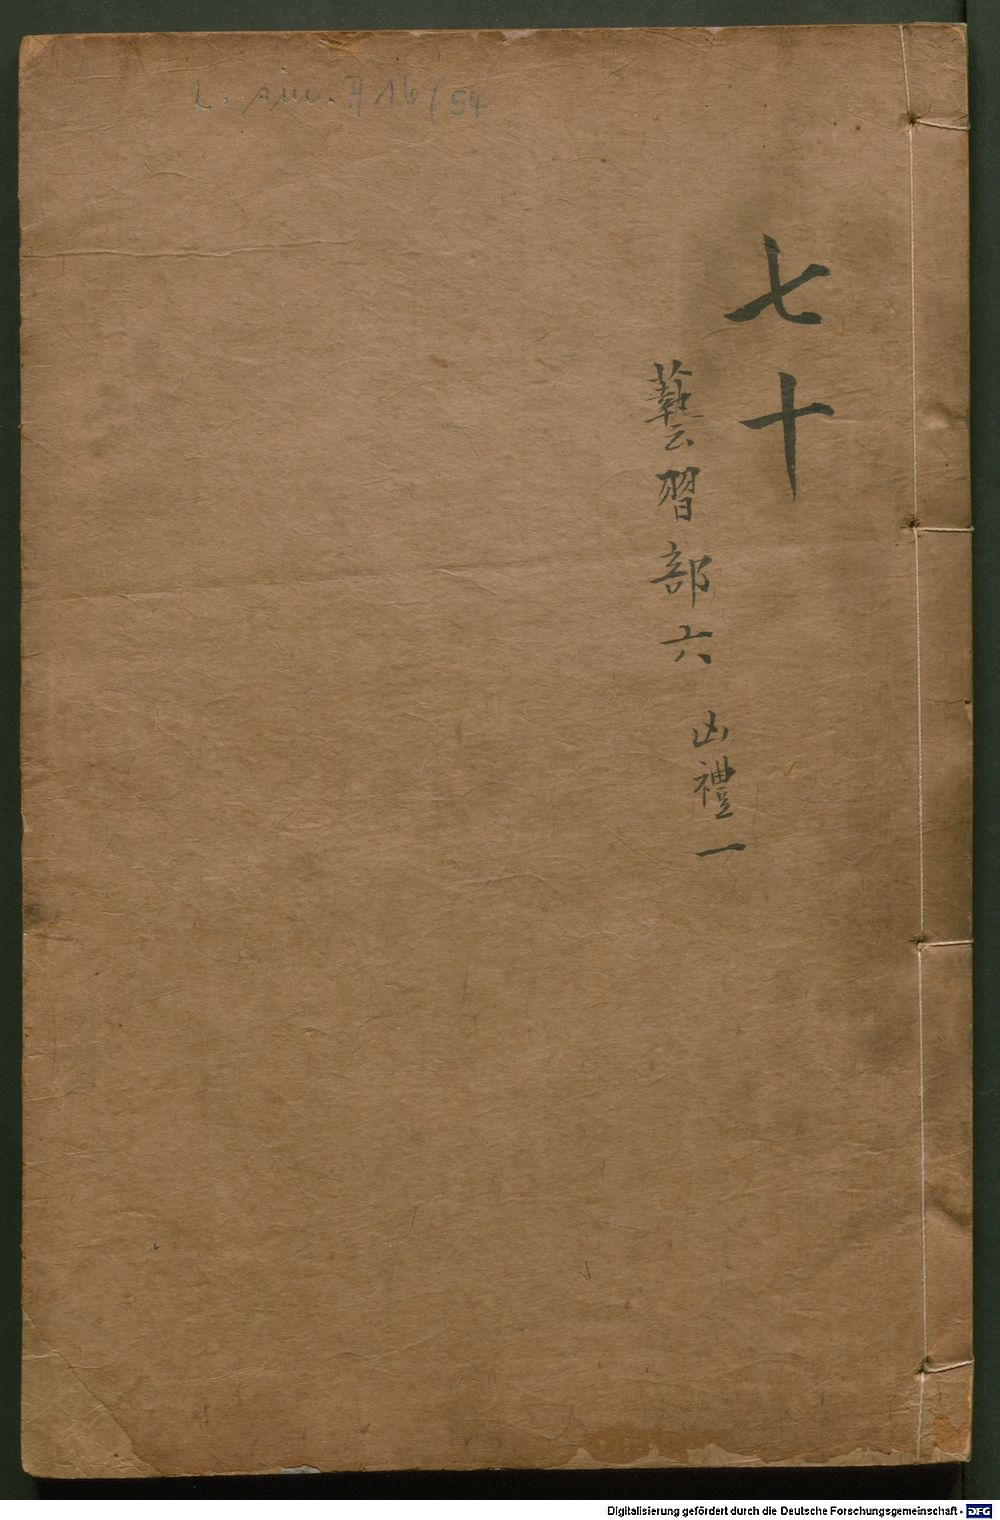 L. sin. A 16/54
七十
藝習部六 凶禮一
Digitalisierung gefördert durch die Deutsche Forschungsgemeinschaft - DFG